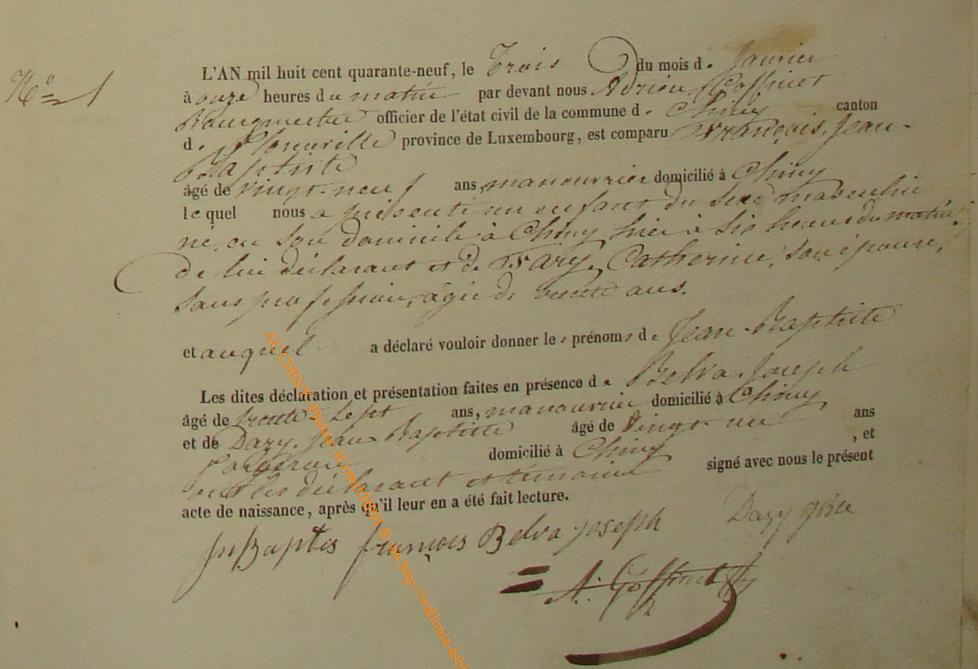 N° 1
L'AN mil huit cent quarante-neuf, le Trois du mois de Janvier
à onze heures du matin par devant nous Adrien Goffinet
Bourgmestre officier de l'état civil de la commune de Chiny canton
de Florenville province de Luxembourg, est comparu François, Jean-
Baptiste
âgé de vingt-neuf ans, manouvrier domicilié à Chiny
lequel nous a présenté un enfant du sexe masculin
né en son domicile à Chiny, hier à six heures du matin,
de lui déclarant et de Catherine, son épouse,
sans profession, âgée de trente ans.
et auquel a déclaré vouloir donner les prénoms de Jean-Baptiste
Les dites déclaration et présentation faites en présence de Belva Joseph
âgé de trente-sept ans, manouvrier domicilié à Chiny
et de Dazy, Jean Baptiste âgé de vingt-un ans
domicilié à Chiny , et
les déclarant et témoins signé avec nous le présent
acte de naissance, après qu'il leur en a été fait lecture.
Jn Baptis françois Belva joseph Dazy
A. Goffinet